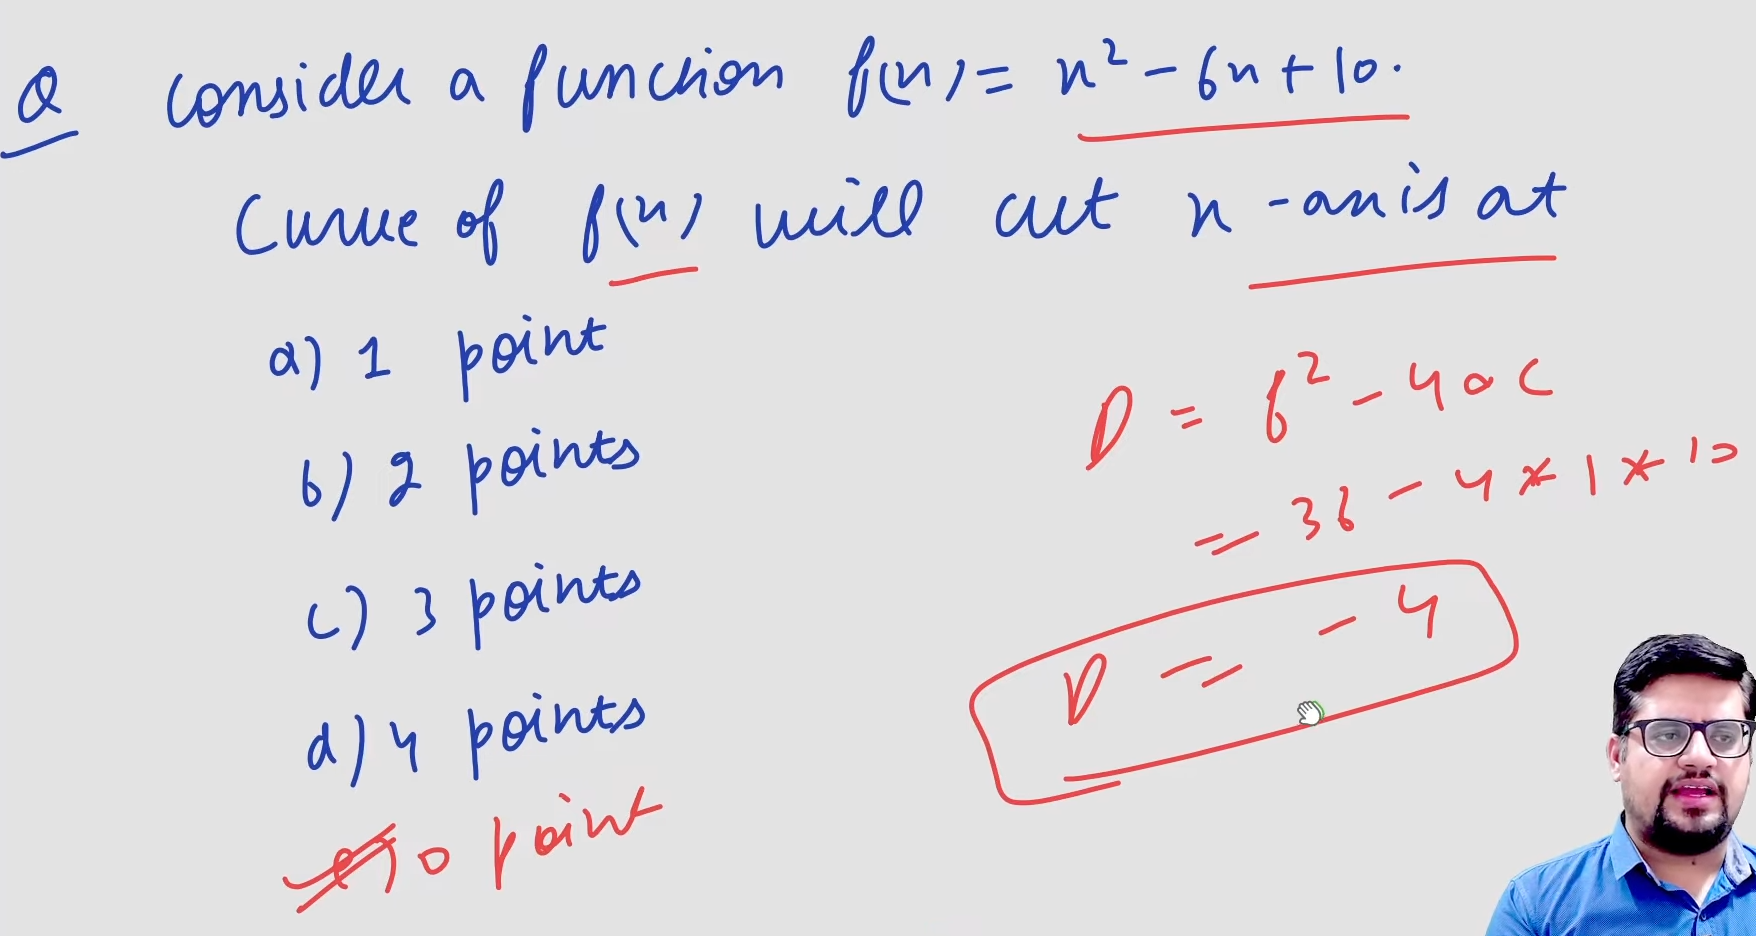 Q Consider a function f(x) = x² - 6x + 10.
Curve of f(x) will cut x-axis at
a) 1 point
b) 2 points
c) 3 points
d) 4 points
e) 0 point
D = b² - 4ac
= 36 - 4 * 1 * 10
D = - 4